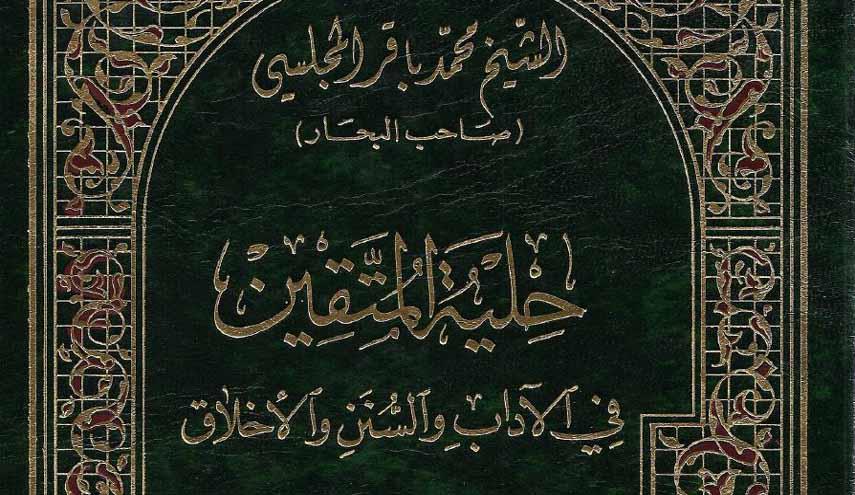 الشيخ محمّد باقر المجلسي
(صاحب البحار)
حِليَة المُتَّقِين
فِي الآدابِ والسُّنَنِ والأخلاق